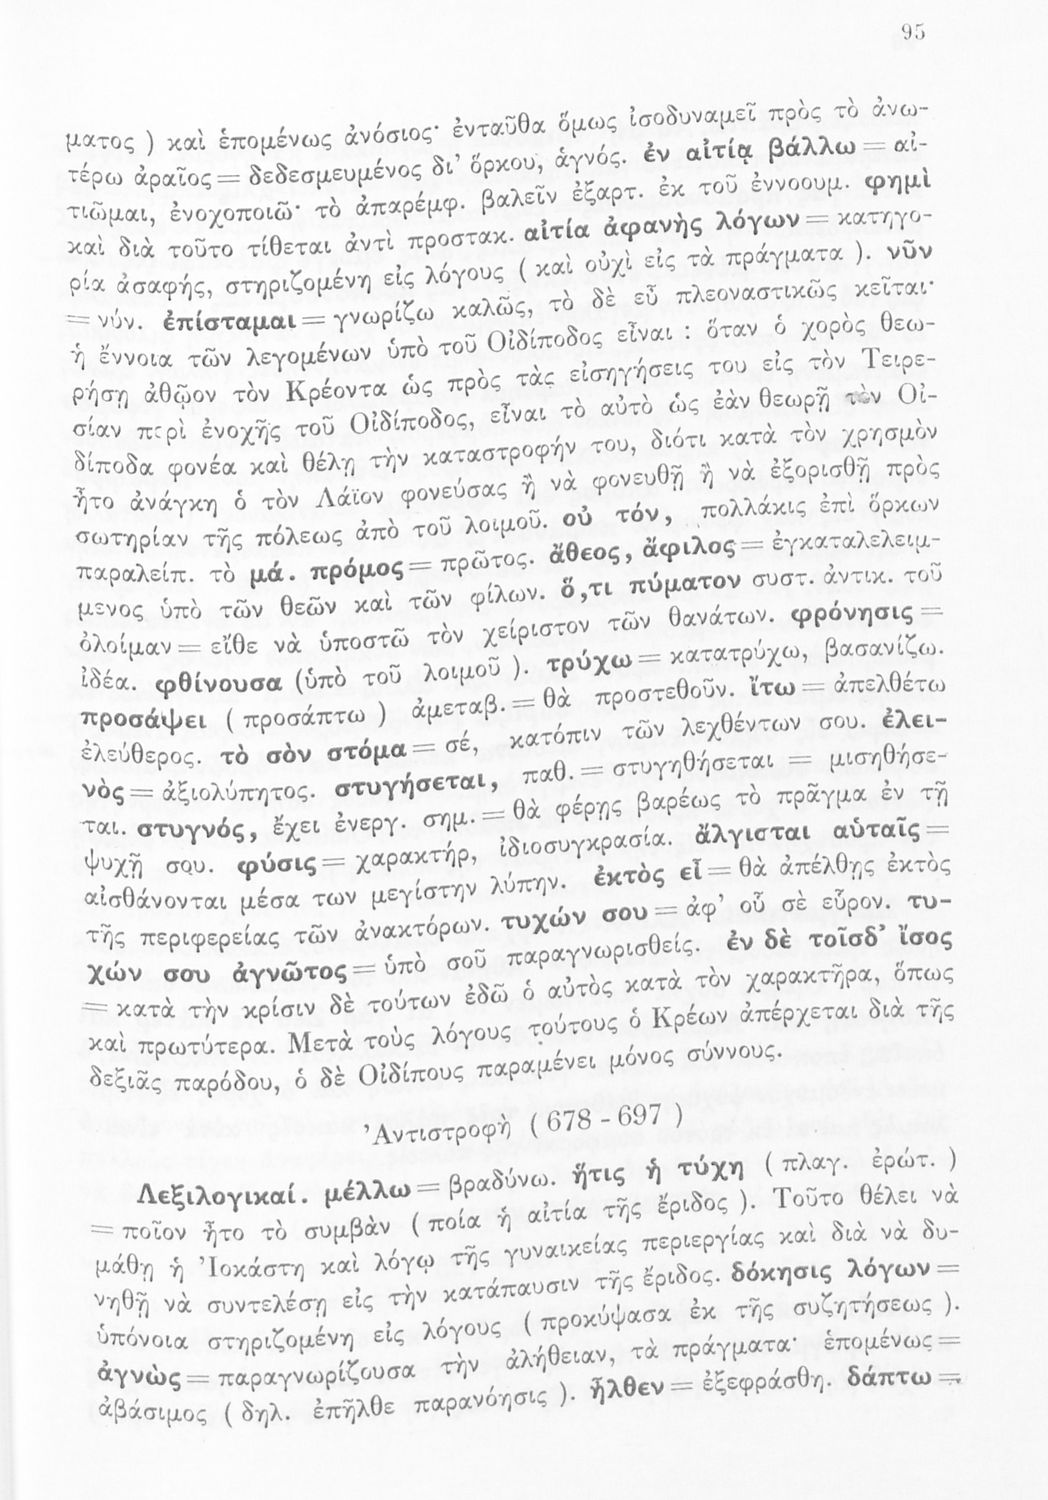 95
ματος ) καὶ ἑπομένως ἀνόσιος· ἐνταῦθα ὅμως ἰσοδυναμεῖ πρὸς τὸ ἀνω-
τέρω ἀραῖος = δεδεσμευμένος δι’ ὅρκου, ἁγνός. ἐν αἰτίᾳ βάλλω = αἰ-
τιῶμαι, ἐνοχοποιῶ· τὸ ἀπαρέμφ. βαλεῖν ἐξαρτ. ἐκ τοῦ ἐννοουμ. φημὶ
καὶ διὰ τοῦτο τίθεται ἀντὶ προστακ. αἰτία ἀφανὴς λόγων = κατηγο-
ρία ἀσαφής, στηριζομένη εἰς λόγους ( καὶ οὐχὶ εἰς τὰ πράγματα ). νῦν
= νύν. ἐπίσταμαι = γνωρίζω καλῶς, τὸ δὲ εὖ πλεοναστικῶς κεῖται·
ἡ ἔννοια τῶν λεγομένων ὑπὸ τοῦ Οἰδίποδος εἶναι : ὅταν ὁ χορὸς θεω-
ρήσῃ ἀθῷον τὸν Κρέοντα ὡς πρὸς τὰς εἰσηγήσεις του εἰς τὸν Τειρε-
σίαν περὶ ἐνοχῆς τοῦ Οἰδίποδος, εἶναι τὸ αὐτὸ ὡς ἐὰν θεωρῇ τὸν Οἰ-
δίποδα φονέα καὶ θέλῃ τὴν καταστροφήν του, διότι κατὰ τὸν χρησμὸν
ἦτο ἀνάγκη ὁ τὸν Λάϊον φονεύσας ἢ νὰ φονευθῇ ἢ νὰ ἐξορισθῇ πρὸς
σωτηρίαν τῆς πόλεως ἀπὸ τοῦ λοιμοῦ. οὐ τόν, πολλάκις ἐπὶ ὅρκων
παραλείπ. τὸ μά. πρόμος = πρῶτος. ἄθεος, ἄφιλος = ἐγκαταλελειμ-
μενος ὑπὸ τῶν θεῶν καὶ τῶν φίλων. ὅ,τι πύματον συστ. ἀντικ. τοῦ
ὀλοίμαν = εἴθε νὰ ὑποστῶ τὸν χείριστον τῶν θανάτων. φρόνησις =
ἰδέα. φθίνουσα (ὑπὸ τοῦ λοιμοῦ ). τρύχω = κατατρύχω, βασανίζω.
προσάψει ( προσάπτω ) ἀμεταβ. = θὰ προστεθοῦν. ἴτω = ἀπελθέτω
ἐλεύθερος. τὸ σὸν στόμα = σέ, κατόπιν τῶν λεχθέντων σου. ἐλει-
νὸς = ἀξιολύπητος. στυγήσεται, παθ. = στυγηθήσεται = μισηθήσε-
ται. στυγνός, ἔχει ἐνεργ. σημ. = θὰ φέρῃς βαρέως τὸ πρᾶγμα ἐν τῇ
ψυχῇ σου. φύσις = χαρακτήρ, ἰδιοσυγκρασία. ἄλγισται αὐταῖς =
αἰσθάνονται μέσα των μεγίστην λύπην. ἐκτὸς εἶ = θὰ ἀπέλθῃς ἐκτὸς
τῆς περιφερείας τῶν ἀνακτόρων. τυχών σου = ἀφ’ οὗ σὲ εὗρον. τυ-
χών σου ἀγνῶτος = ὑπὸ σοῦ παραγνωρισθείς. ἐν δὲ τοῖσδ’ ἴσος
= κατὰ τὴν κρίσιν δὲ τούτων ἐδῶ ὁ αὐτὸς κατὰ τὸν χαρακτῆρα, ὅπως
καὶ πρωτύτερα. Μετὰ τοὺς λόγους τούτους ὁ Κρέων ἀπέρχεται διὰ τῆς
δεξιᾶς παρόδου, ὁ δὲ Οἰδίπους παραμένει μόνος σύννους.
Ἀντιστροφὴ ( 678 - 697 )
Λεξιλογικαί. μέλλω = βραδύνω. ἥτις ἡ τύχη ( πλαγ. ἐρώτ. )
= ποῖον ἦτο τὸ συμβὰν ( ποία ἡ αἰτία τῆς ἔριδος ). Τοῦτο θέλει νὰ
μάθῃ ἡ Ἰοκάστη καὶ λόγῳ τῆς γυναικείας περιεργίας καὶ διὰ νὰ δυ-
νηθῇ νὰ συντελέσῃ εἰς τὴν κατάπαυσιν τῆς ἔριδος. δόκησις λόγων =
ὑπόνοια στηριζομένη εἰς λόγους ( προκύψασα ἐκ τῆς συζητήσεως ).
ἀγνὼς = παραγνωρίζουσα τὴν ἀλήθειαν, τὰ πράγματα· ἑπομένως =
ἀβάσιμος ( δηλ. ἐπῆλθε παρανόησις ). ἦλθεν = ἐξεφράσθη. δάπτω =